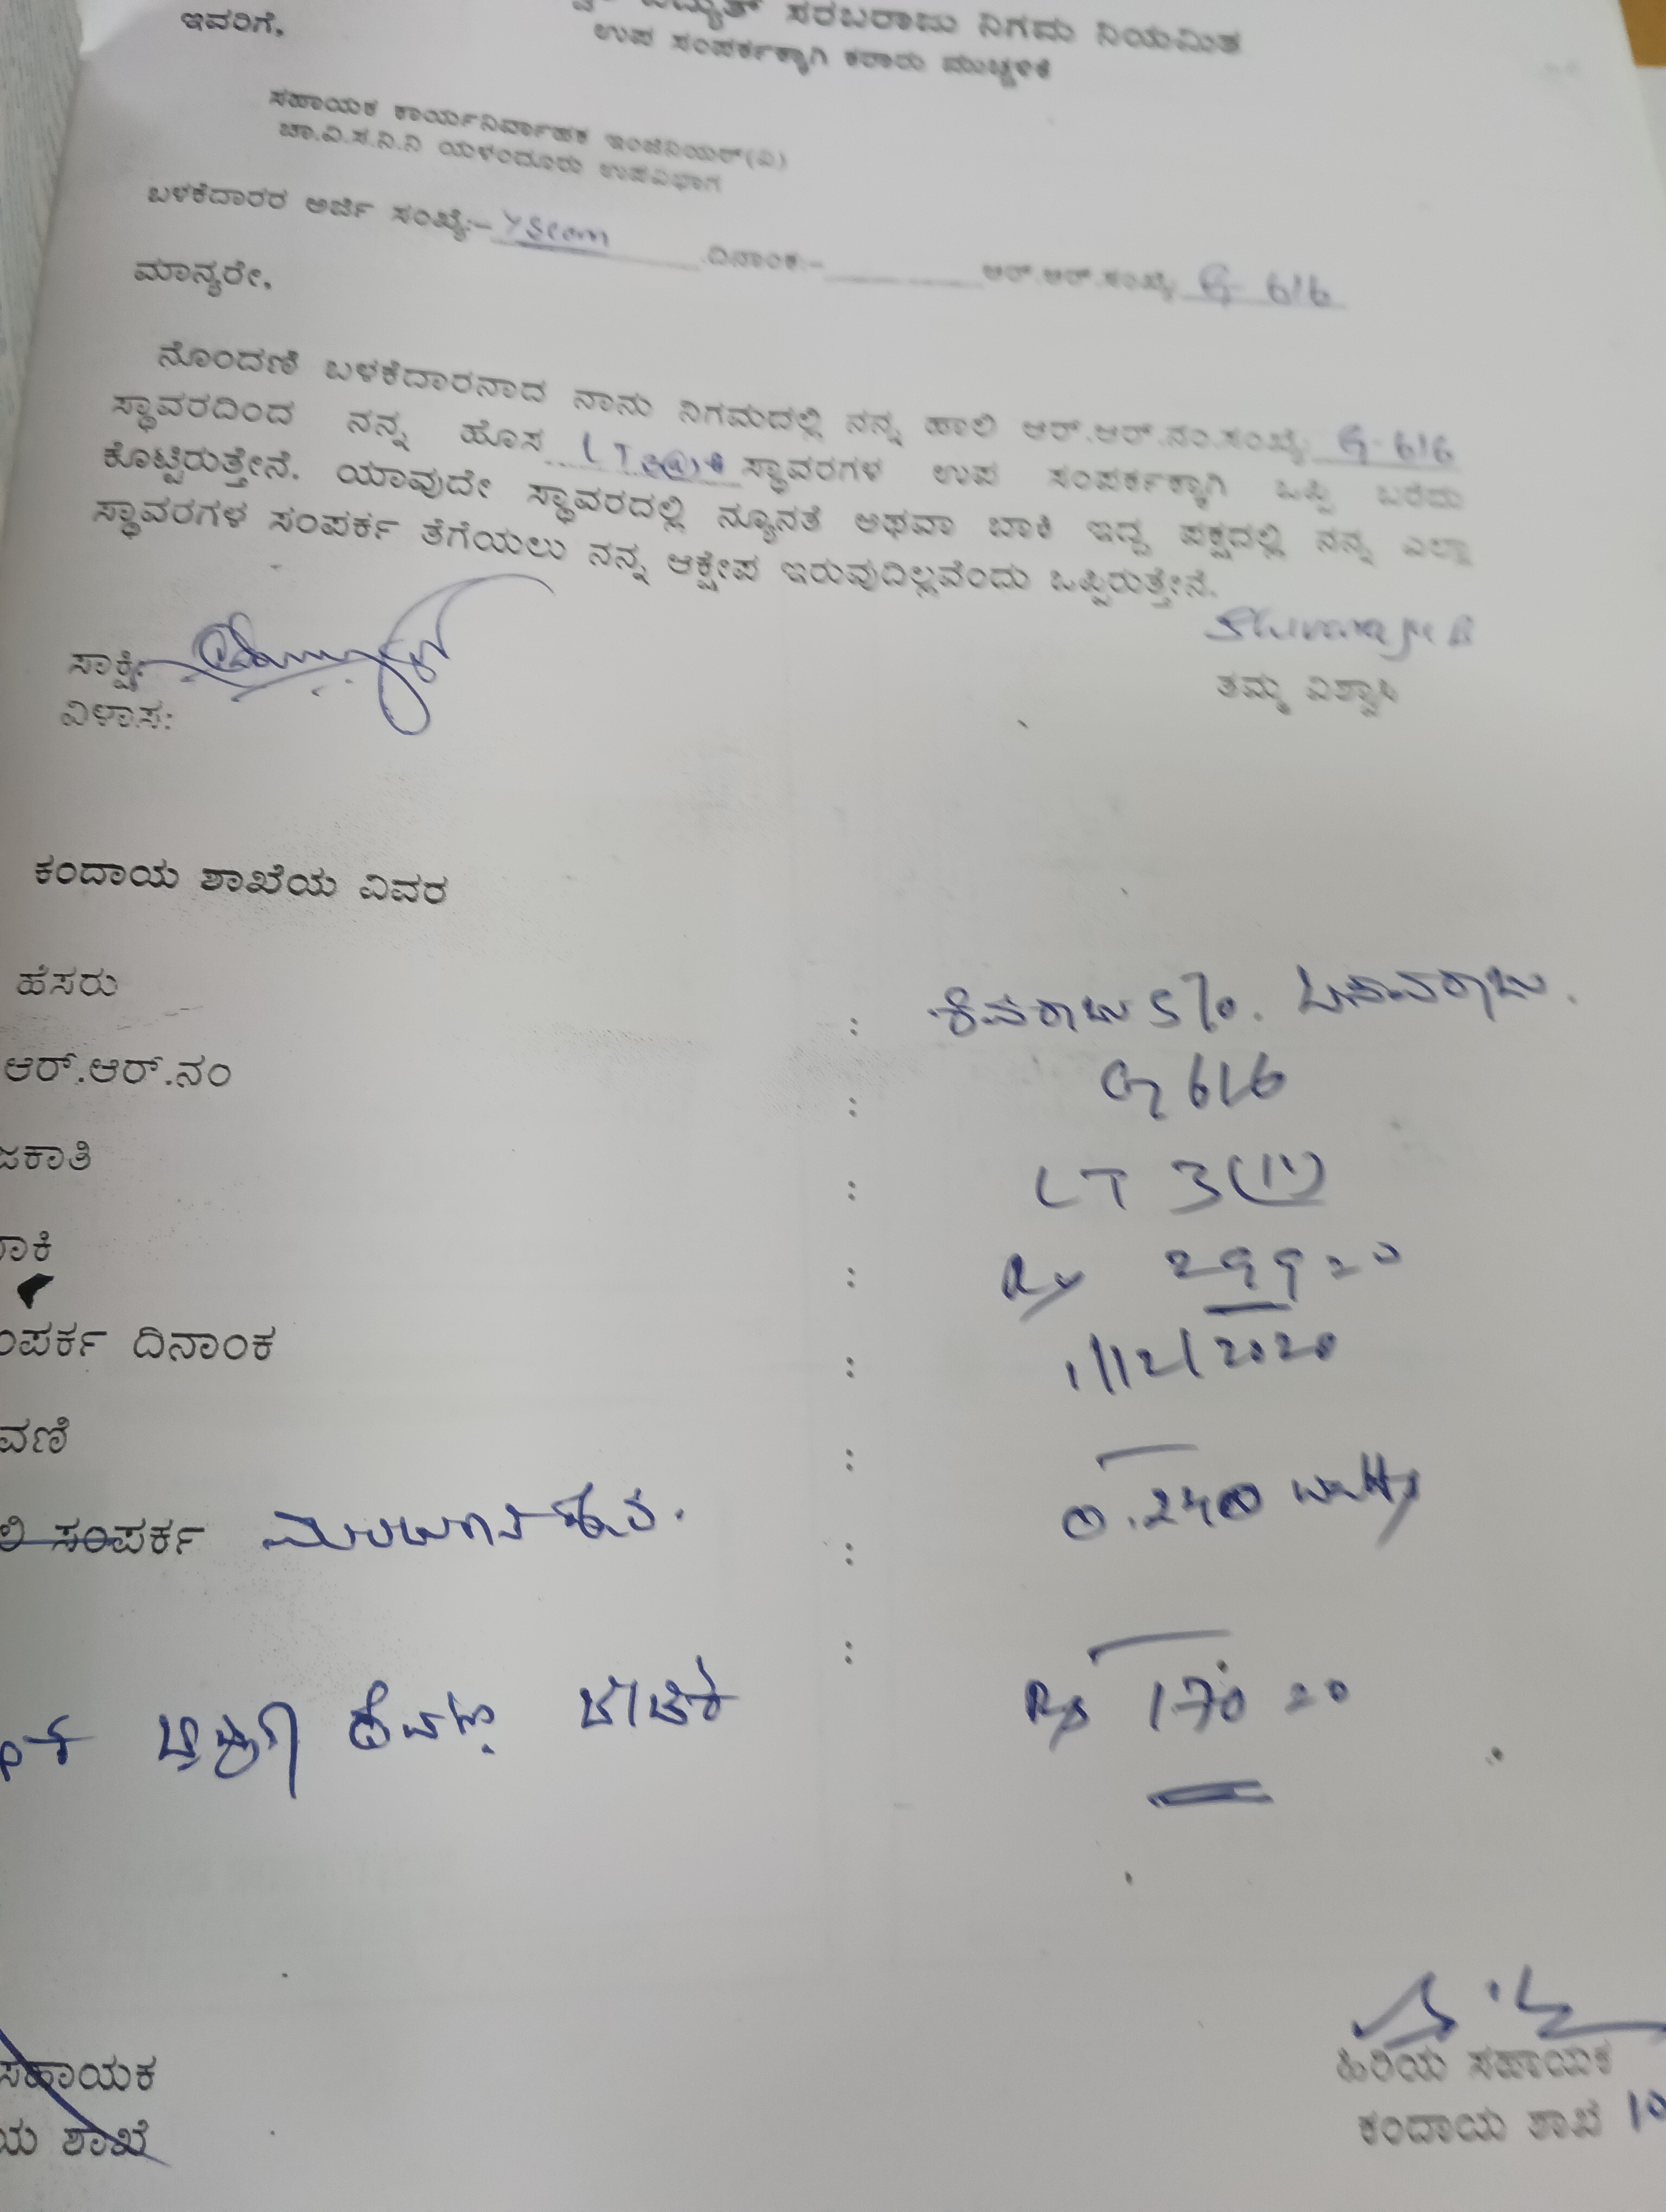 ಇವರಿಗೆ,
ವಿದ್ಯುತ್ ಸರಬರಾಜು ನಿಗಮ ನಿಯಮಿತ
ಉಪ ಸಂಪರ್ಕಕ್ಕಾಗಿ ಕರಾರು ಮುಚ್ಚಳಿಕೆ
ಸಹಾಯಕ ಕಾರ್ಯನಿರ್ವಾಹಕ ಇಂಜಿನಿಯರ್(ವಿ)
ಚಾ.ವಿ.ಸ.ನಿ.ನಿ ಯಳಂದೂರು ಉಪವಿಭಾಗ
ಬಳಕೆದಾರರ ಅರ್ಜಿ ಸಂಖ್ಯೆ:- ದಿನಾಂಕ:- ಆರ್.ಆರ್.ಸಂಖ್ಯೆ G 616
ಮಾನ್ಯರೇ,
ನೊಂದಣಿ ಬಳಕೆದಾರನಾದ ನಾನು ನಿಗಮದಲ್ಲಿ ನನ್ನ ಹಾಲಿ ಆರ್.ಆರ್.ನಂ.ಸಂಖ್ಯೆ G-616
ಸ್ಥಾವರದಿಂದ ನನ್ನ ಹೊಸ LT ಸ್ಥಾವರಗಳ ಉಪ ಸಂಪರ್ಕಕ್ಕಾಗಿ ಒಪ್ಪಿ ಬರೆದು
ಕೊಟ್ಟಿರುತ್ತೇನೆ. ಯಾವುದೇ ಸ್ಥಾವರದಲ್ಲಿ ನ್ಯೂನತೆ ಅಥವಾ ಬಾಕಿ ಇದ್ದ ಪಕ್ಷದಲ್ಲಿ ನನ್ನ ಎಲ್ಲಾ
ಸ್ಥಾವರಗಳ ಸಂಪರ್ಕ ತೆಗೆಯಲು ನನ್ನ ಆಕ್ಷೇಪ ಇರುವುದಿಲ್ಲವೆಂದು ಒಪ್ಪಿರುತ್ತೇನೆ.
ಸಾಕ್ಷಿ
ವಿಳಾಸ:
ತಮ್ಮ ವಿಶ್ವಾಸಿ
ಕಂದಾಯ ಶಾಖೆಯ ವಿವರ
ಹೆಸರು : ಶಿವರಾಜು S/o. ಬಸವರಾಜು.
ಆರ್.ಆರ್.ನಂ : G 616
ಜಕಾತಿ : LT 3(IV)
ಬಾಕಿ : Rs 299=00
ಸಂಪರ್ಕ ದಿನಾಂಕ : 1/12/2020
ವಣಿ :
ಲಿ ಸಂಪರ್ಕ ಮಂಜೂರಾತಿ : 0.240 watts
: Rs 170=00
ಸಹಾಯಕ
ಯ ಶಾಖೆ
ಹಿರಿಯ ಸಹಾಯಕ
ಕಂದಾಯ ಶಾಖೆ 10